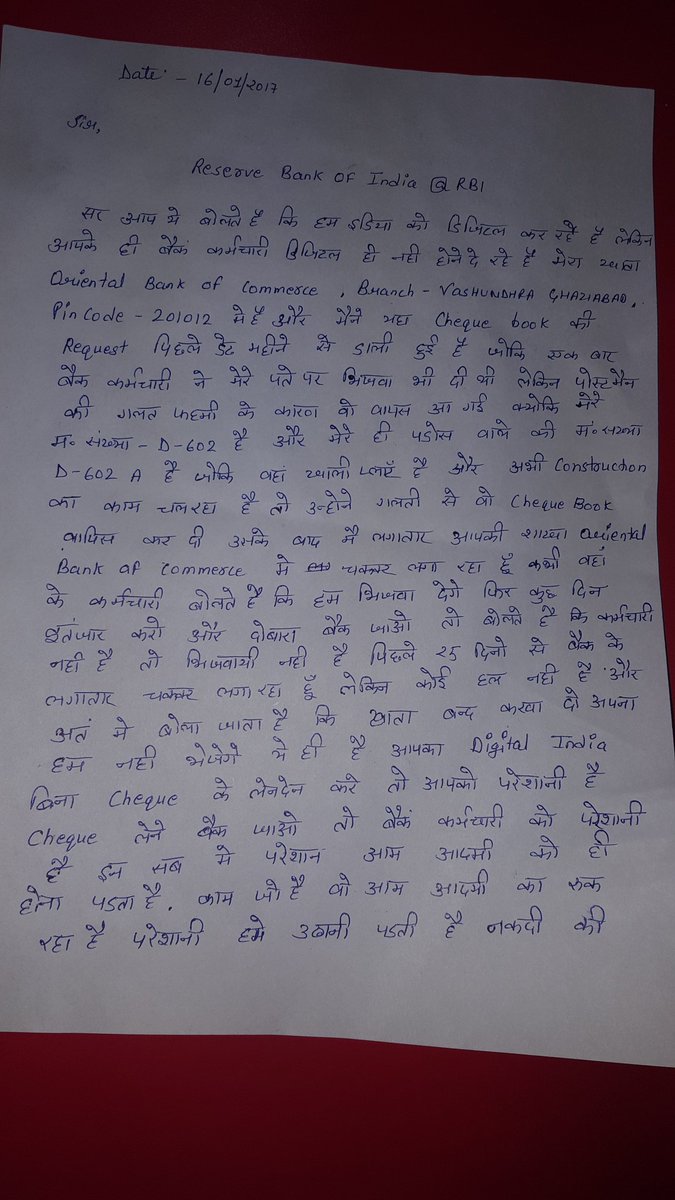 Date :- 16/01/2017
Reserve Bank of India @ RBI
सर आप ये बोलते है कि हम इडिया को डिजिटल कर रहे है लेकिन
आपके ही बैकं कर्मचारी डिजिटल ही नही होने दे रहे है मेरा खाता
Oriental Bank of Commerce , Branch - VASHUNDHRA GHAZIABAD,
Pin Code - 201012 मे है और मैने यहा Cheque book की
Request पिछले डेट महीने से डाली हुई है जोकि एक बार
बैक कर्मचारी ने मेरे पते पर भिजवा भी दी थी लेकिन पोस्टमैन
की गलत फहमी के कारण वो वापस आ गई क्योकि मेरे
म. संख्या - D-602 है और मेरे ही पडोस वाले की म. सख्या
D-602 A है जोकि वहां खाली प्लाॅट है और अभी Construchon
का काम चल रहा है तो उन्होने गलती से वो Cheque Book
वापिस कर दी उसके बाद मै लगातार आपकी शाखा Oriental
Bank of Commerce मे चक्कर लगा रहा हूँ कभी वहां
के कर्मचारी बोलते है कि हम भिजवा देगे फिर कुछ दिन
इतंजार करो और दोबारा बैक जाओ तो बोलते है कि कर्मचारी
नही है तो भिजवायी नही है पिछले 25 दिनो से बैक के
लगातार चक्कर लगा रहा हूँ लेकिन कोई हल नही है और
अतं मे बोला जाता है कि खाता बन्द करवा दो अपना
हम नही भेजेगे ये ही है आपका Digital India
बिना Cheque के लेनदेन करे तो आपको परेशानी है
Cheque लेने बैक जाओ तो बैकं कर्मचारी को परेशानी
है इन सब मे परेशान आम आदमी को ही
होना पडता है. काम जो है वो आम आदमी का रुक
रहा है परेशानी हमे उठानी पडती है नकदी की